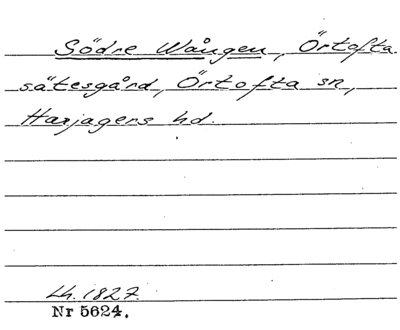 Södre Wången, Örtofta
sätesgård, Örtofta sn,
Harjagers hd.
Lh. 1827.
Nr 5624.